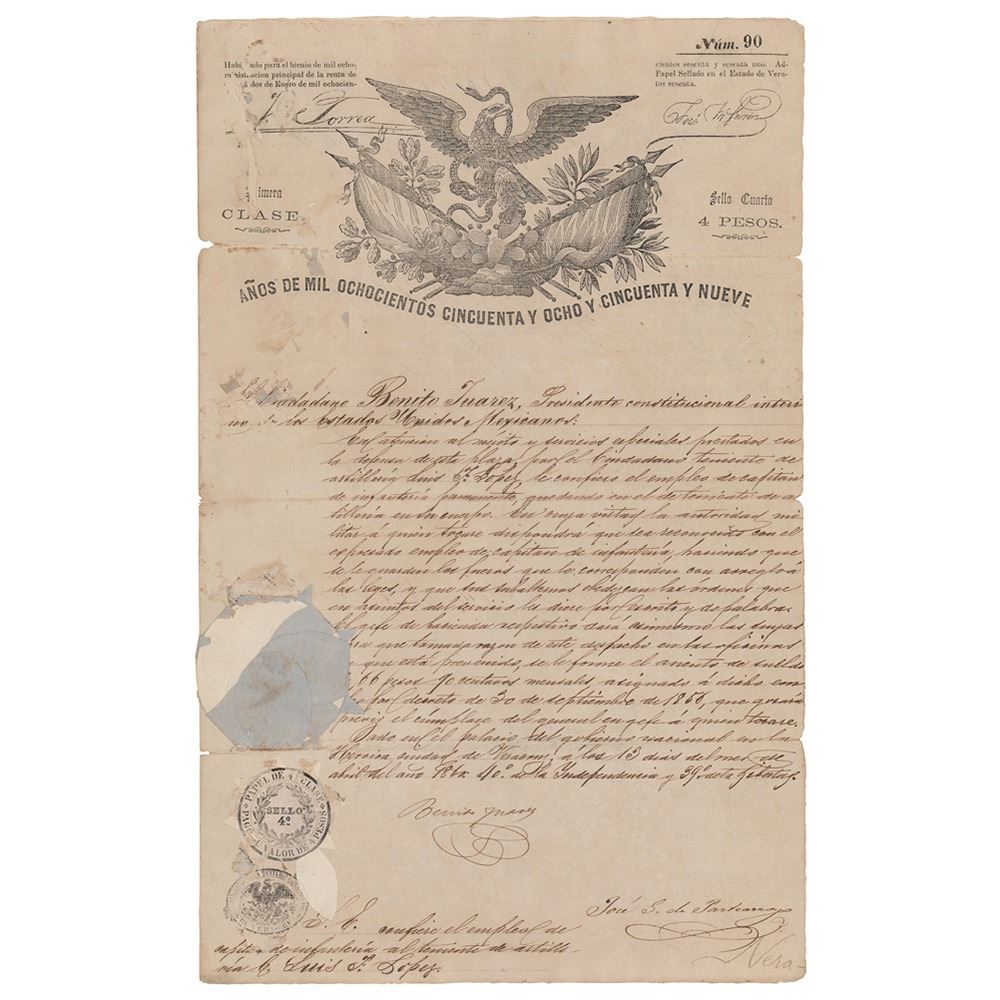 Núm. 90
Habi ado para el bienio de mil ocho-
principal de la renta de
dos de Enero de mil ochocien-
cientos sesenta y sesenta uno. Ad-
Papel Sellado en el Estado de Vera-
tos sesenta.
Torrea
José
imera
CLASE.
Sello Cuarto
4 PESOS.
AÑOS DE MIL OCHOCIENTOS CINCUENTA Y OCHO Y CINCUENTA Y NUEVE
iudadano Benito Juarez, Presidente constitucional interi
no, de los Estados Unidos Mexicanos:
En atencion al mérito y servicios especiales prestados en
la defensa de esta plaza, por el Ciudadano teniente de
artilleria Luis F. Lopez, le confiere el empleo de capitan
de infanteria permanente, quedando en el de teniente de ar
tilleria en su cuerpo. En cuya virtud la autoridad mi
litar á quien tocare dispondrá que sea reconocido con el
espresado empleo de capitan de infanteria, haciendo que
se le guarden los fueros que le corresponden con arreglo á
las leyes, y que sus subalternos obedezcan las órdenes que
en asuntos del servicio les diere por escrito y de palabra.
El gefe de hacienda respectivo dará asimismo las suyas
ra que tomada razon de este despacho en las oficinas
que está prevenido, se le forme el asiento de sueldo
66 pesos 90 centavos mensales asignado á dicho em
por decreto de 30 de septiembre de 1856, que gozará
previo el cúmplase del general en gefe á quien tocare.
Dado en el palacio del gobierno nacional en la
Heroica ciudad de Veracruz, á los 13 dias del mes de
abril del año 1860. 40º de la Independencia y 39º de la libertad.
Benito Juarez
PAPEL DE 4ª CLASE
SELLO
4º
PAGÓ L VALOR DE 4 PESOS
José G. de Partearroyo
S. E. confiere el empleo de
capitan de infanteria al teniente de artille
ria C. Luis F. Lopez.
Vera-